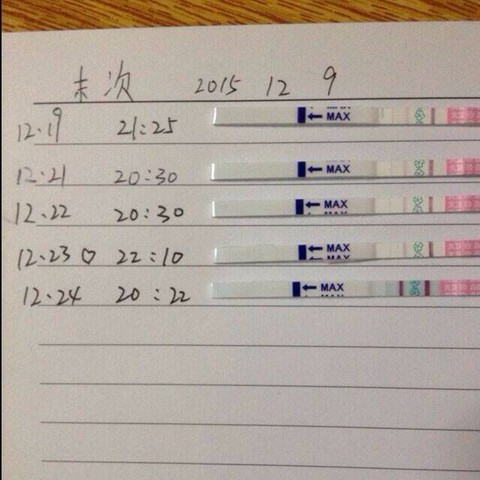 末次 2015 12 9
12.19 21:25 ← MAX
12.21 20:30 ← MAX
12.22 20:30 ← MAX
12.23♡ 22:10 ← MAX
12.24 20:22 ← MAX